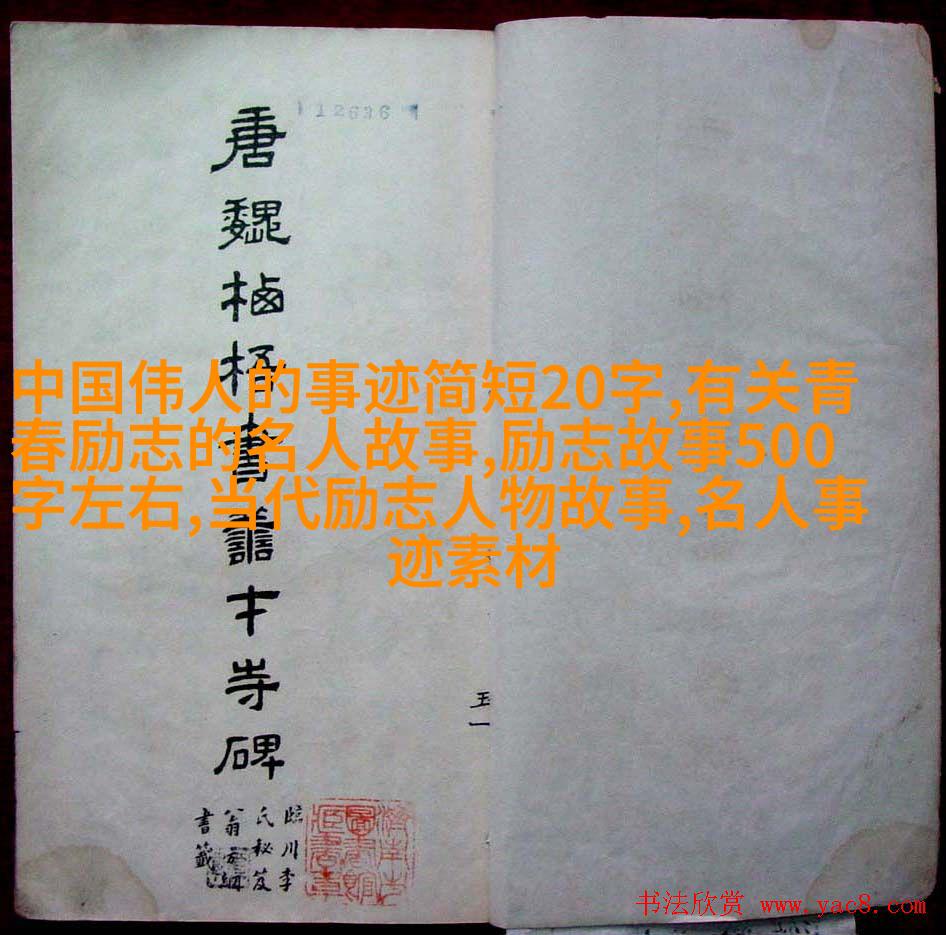 12636
唐魏栖梧書善才寺碑
中国伟人的事迹简短20字,有关青
春励志的名人故事,励志故事500
字左右,当代励志人物故事,名人事
迹素材
臨川李
氏秘笈
翁方綱
書籤
玉一
书法欣赏 www.yac8.com